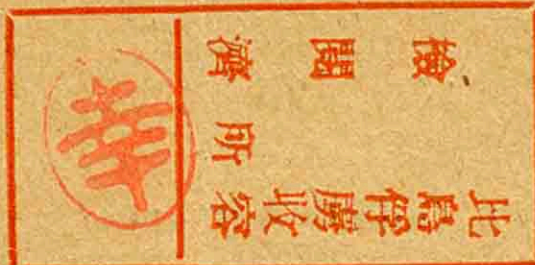 比島俘虜收容
所
檢閲濟